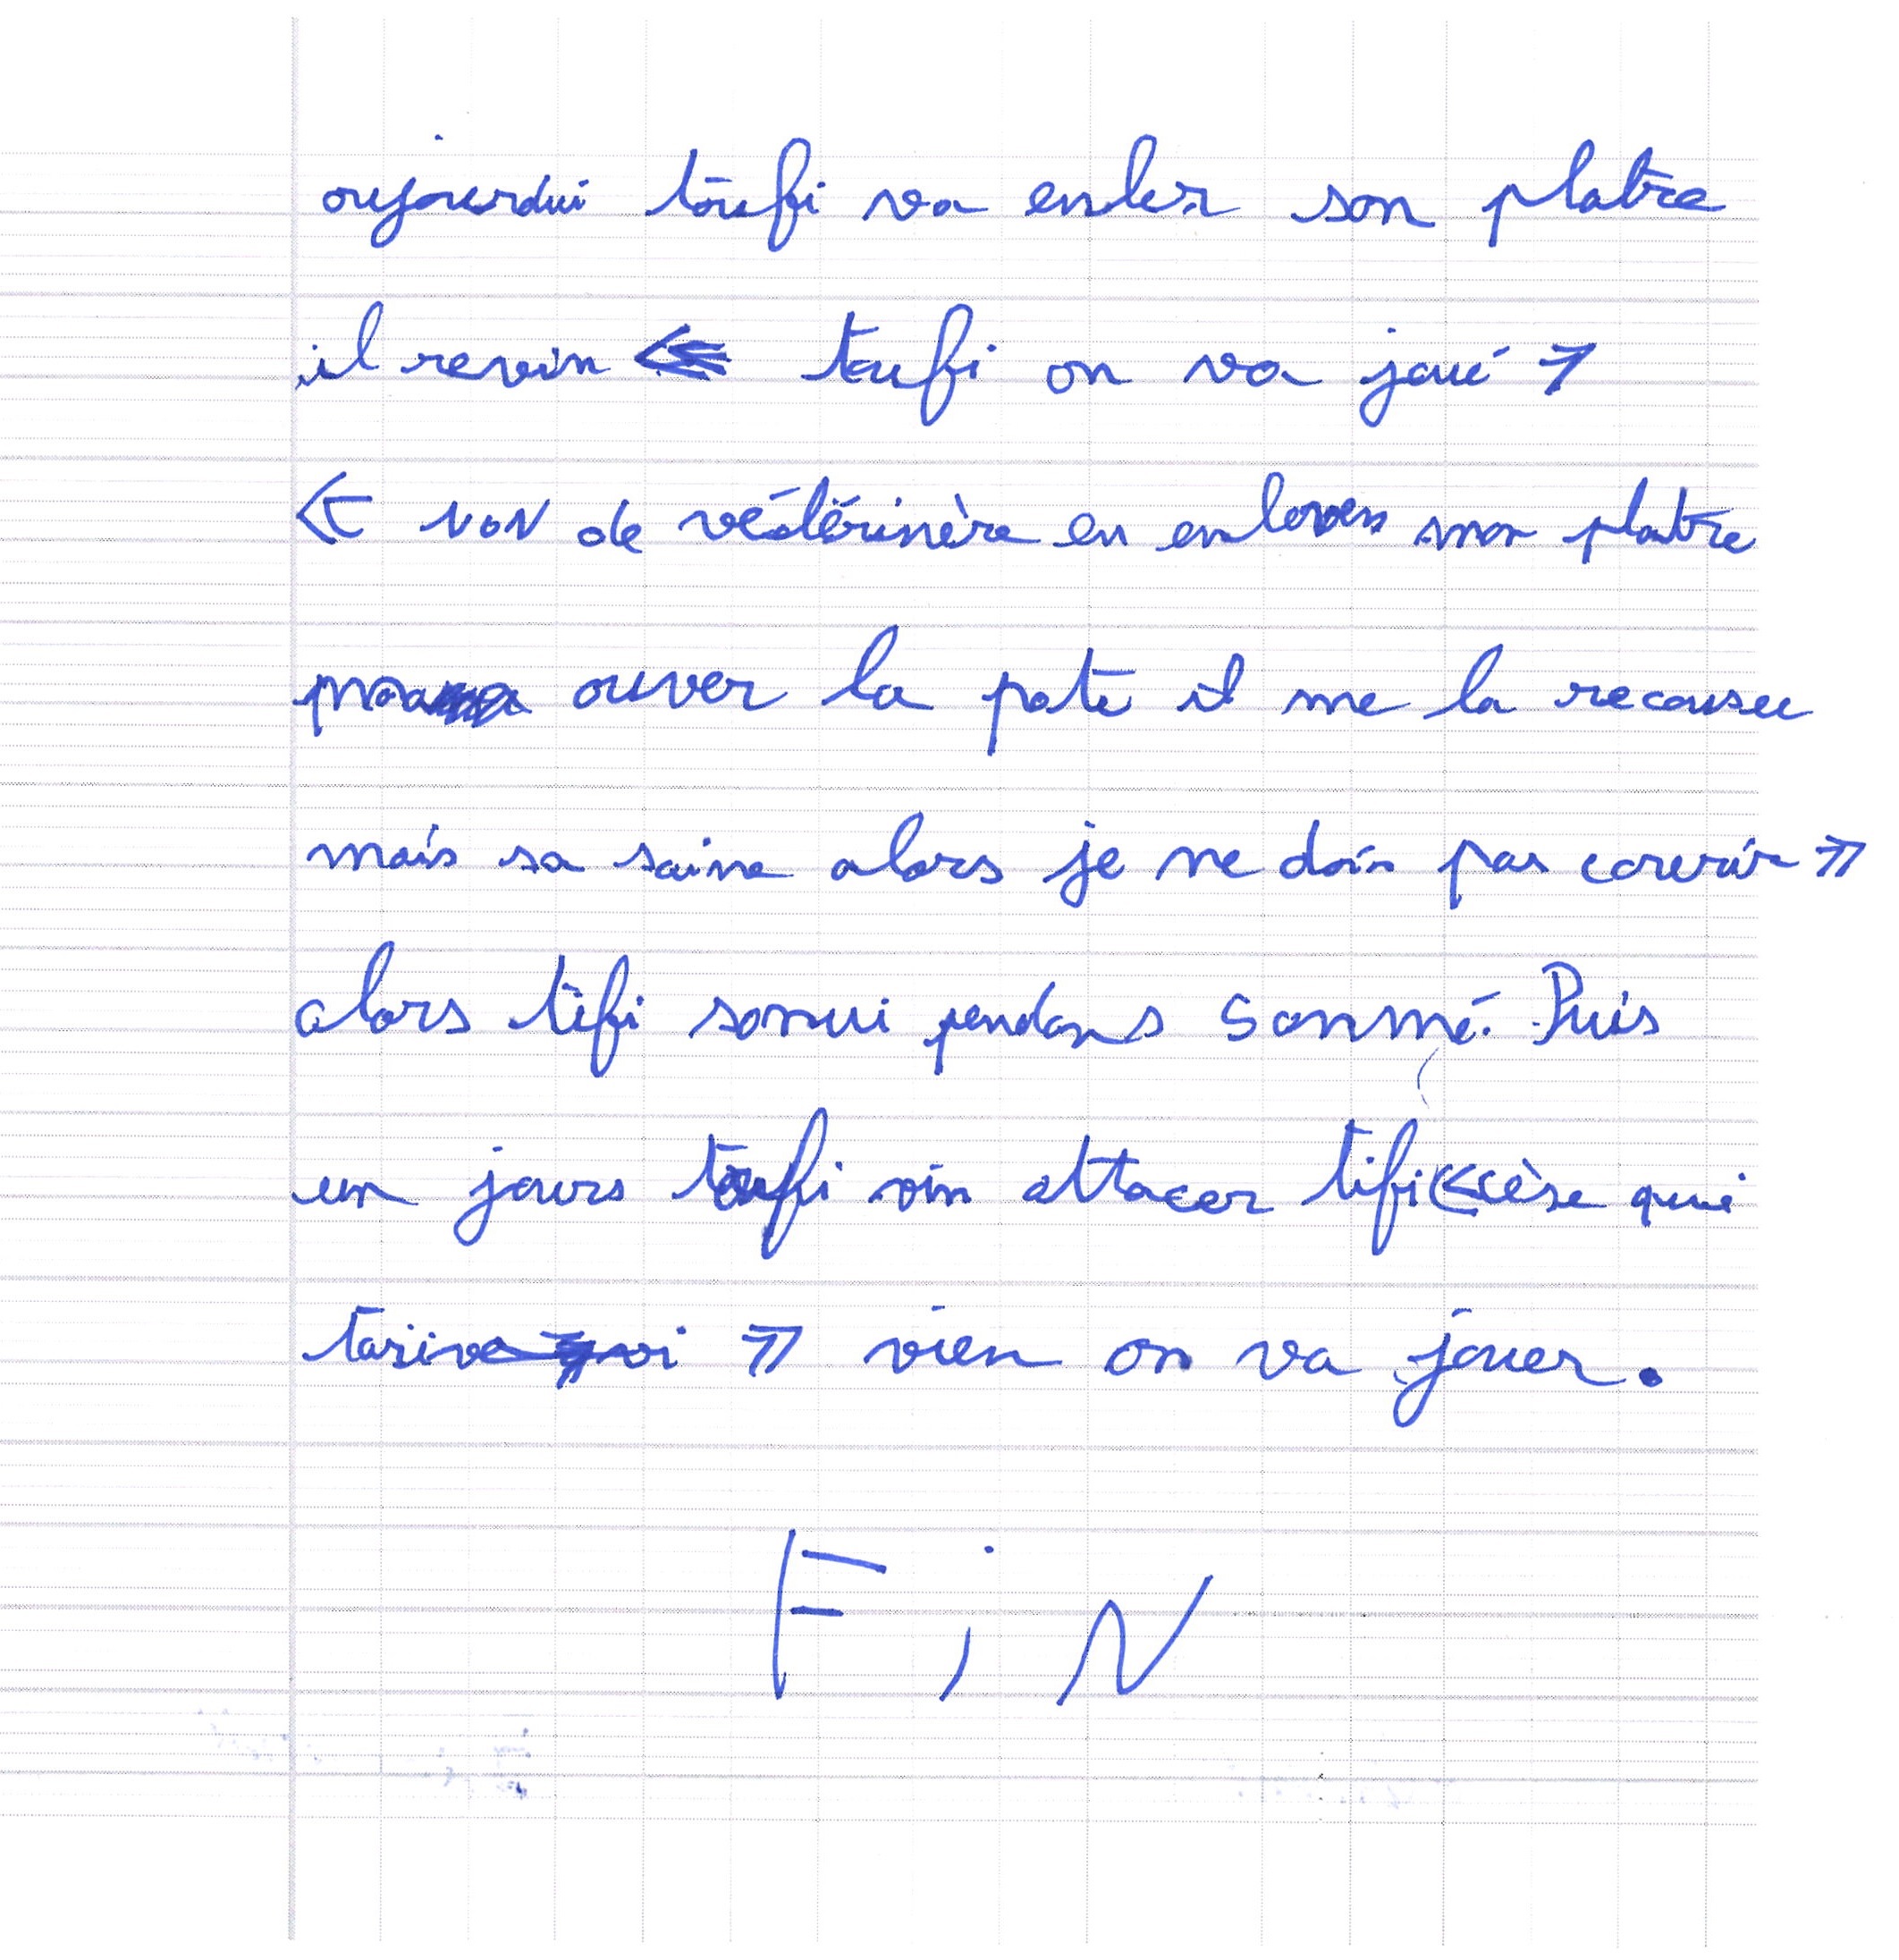 oujourdui toufi va enler son platre
il revin << toufi on va joué >
<< NON de vétérinère en enloven mon platre
ouver la pate il me la recousu
mais sa saine alors je ne dois pas courir >>
alors tifi sonui pendans sonmé. Puis
un jours toufi vin attacer tifi << cèse qui
tarive >> vien on va jouer.
FiN